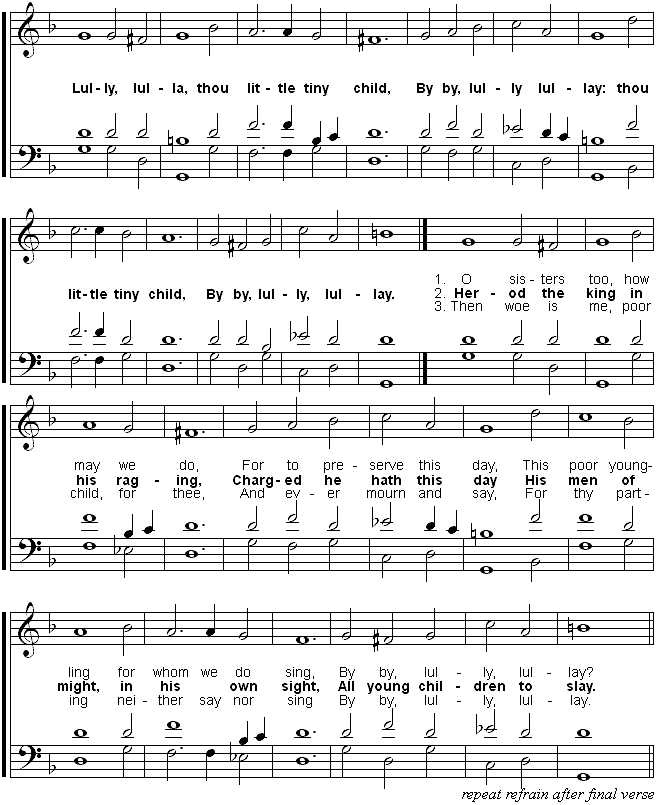 Lul- ly, lul - la, thou lit - tle tiny child, By by, lul - ly lul - lay: thou
lit-tle tiny child, By by, lul - ly, lul - lay.
1. O sis - ters too, how
2. Her - od the king in
3. Then woe is me, poor
may we do, For to pre - serve this day, This poor young-
his rag - ing, Charg- ed he hath this day His men of
child, for thee, And ev - er mourn and say, For thy part -
ling for whom we do sing, By by, lul - ly, lul - lay?
might, in his own sight, All young chil - dren to slay.
ing nei - ther say nor sing By by, lul - ly, lul - lay.
repeat refrain after final verse